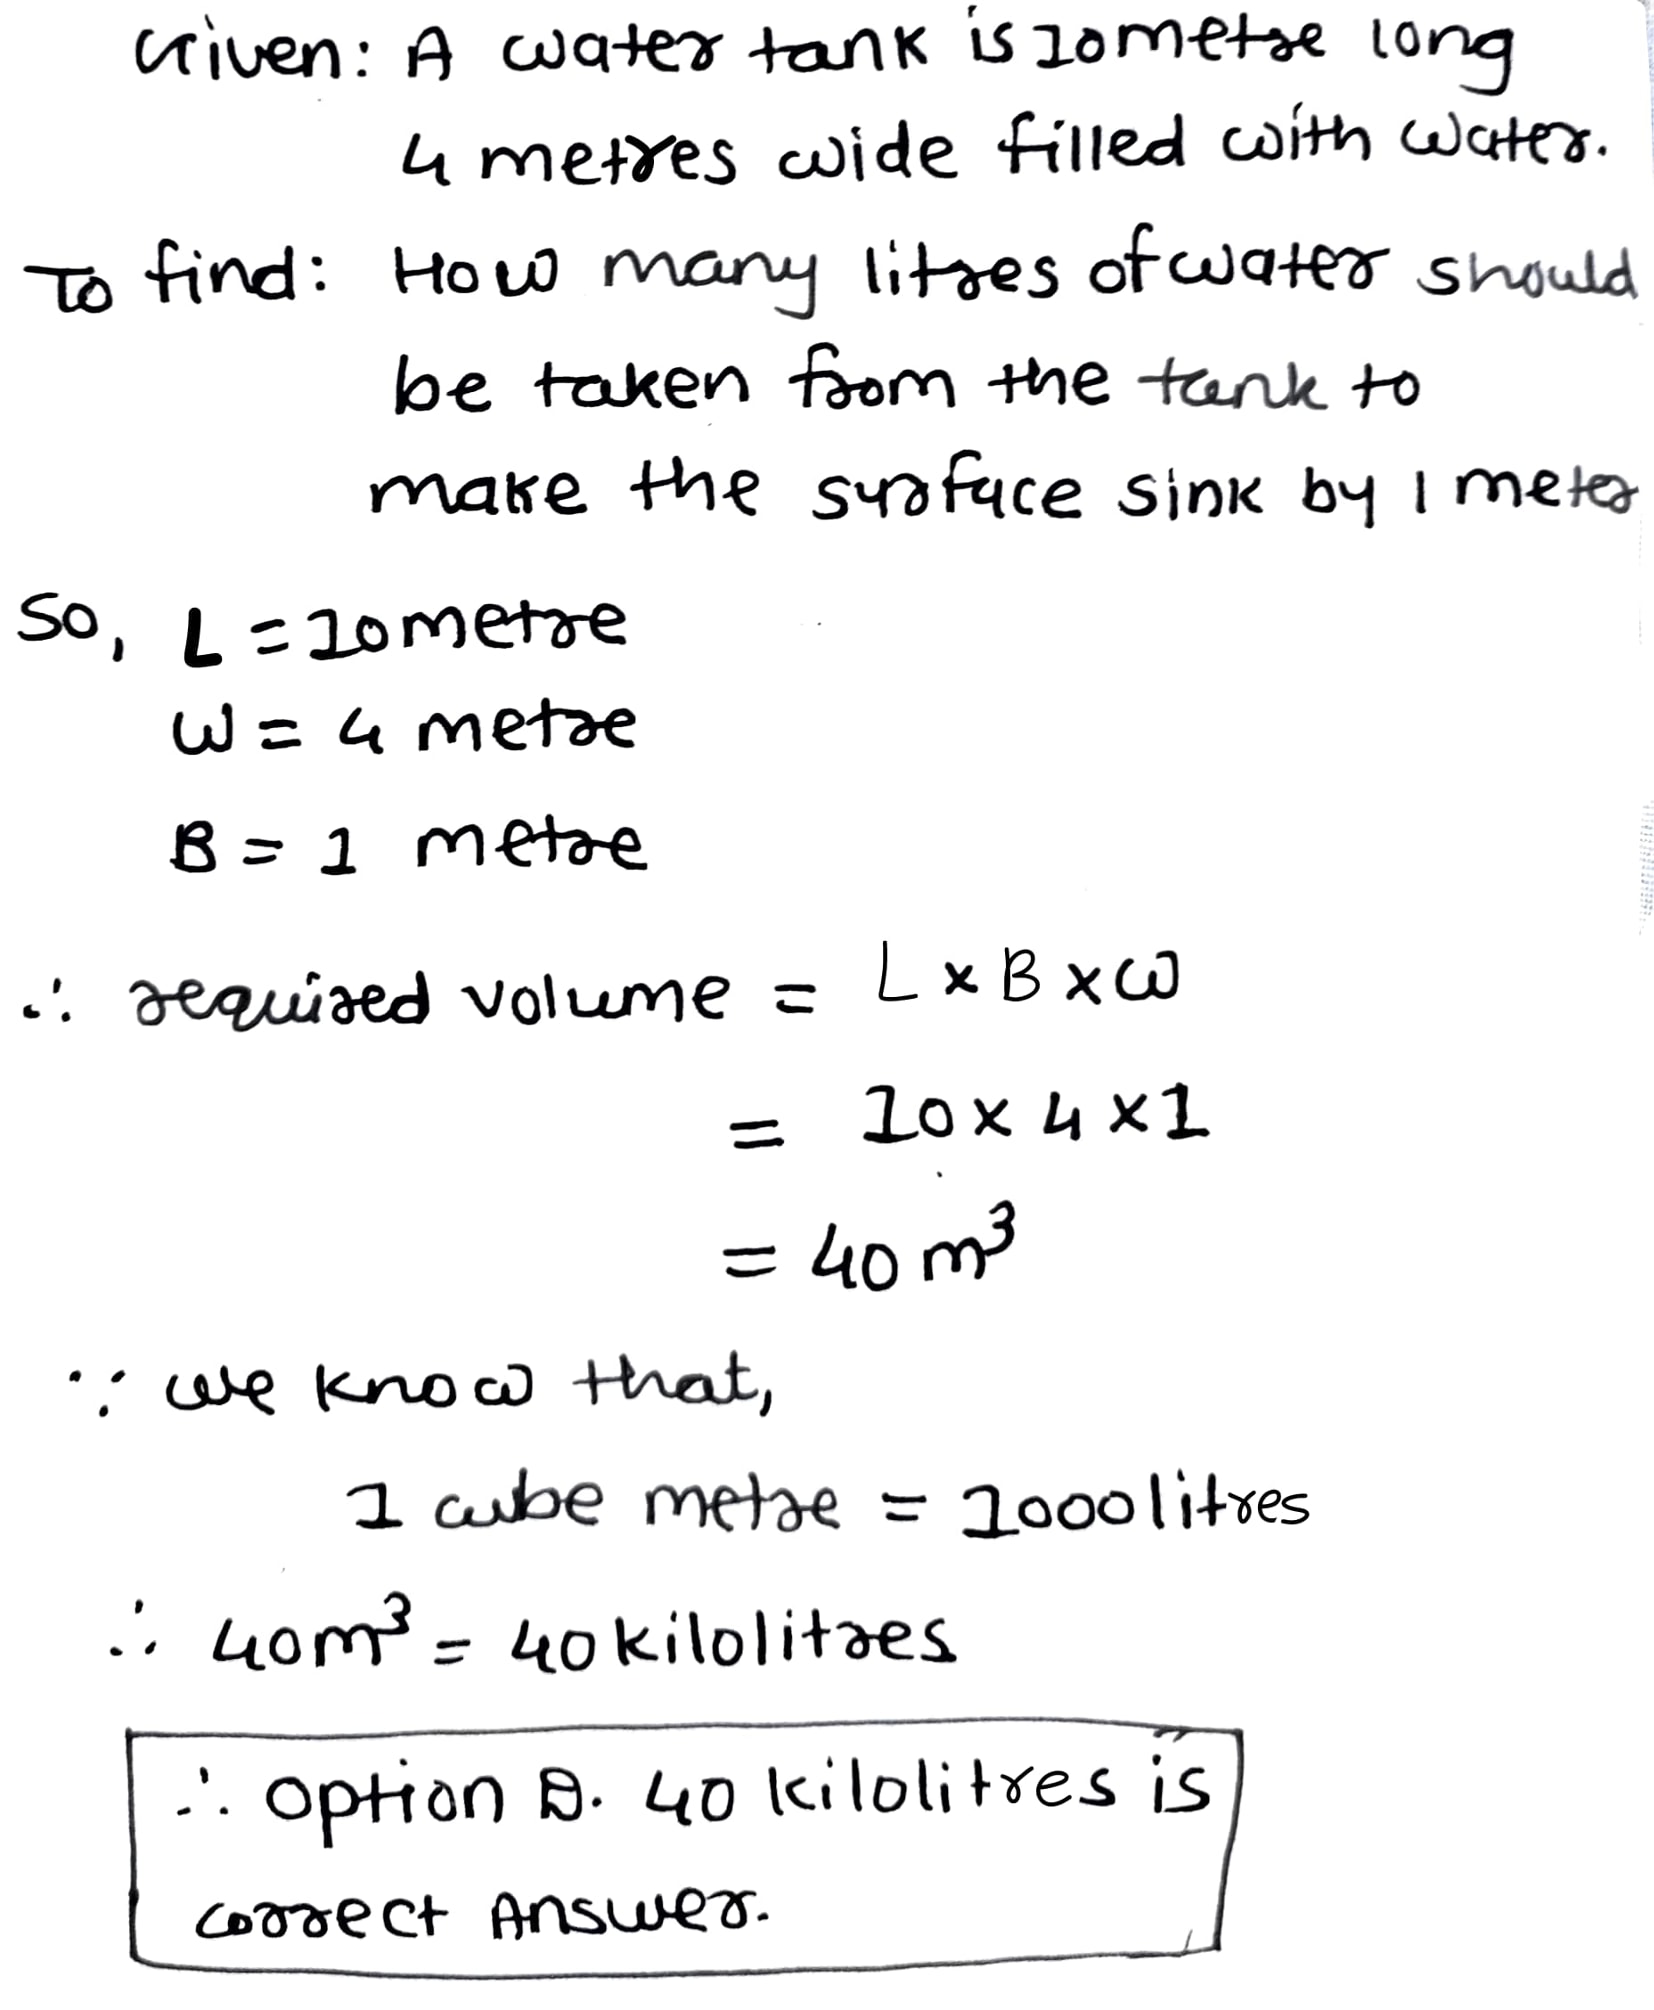 Given: A water tank is 10metre long
4 metres wide filled with water.
To find: How many litres of water should
be taken from the tank to
make the surface sink by 1 meter
So, L = 10metre
W = 4 metre
B = 1 metre
∴ required volume = L × B × W
= 10 × 4 × 1
= 40 m³
∵ we know that,
1 cube metre = 1000 litres
∴ 40m³ = 40 kilolitres
∴ option D. 40 kilolitres is
correct Answer.